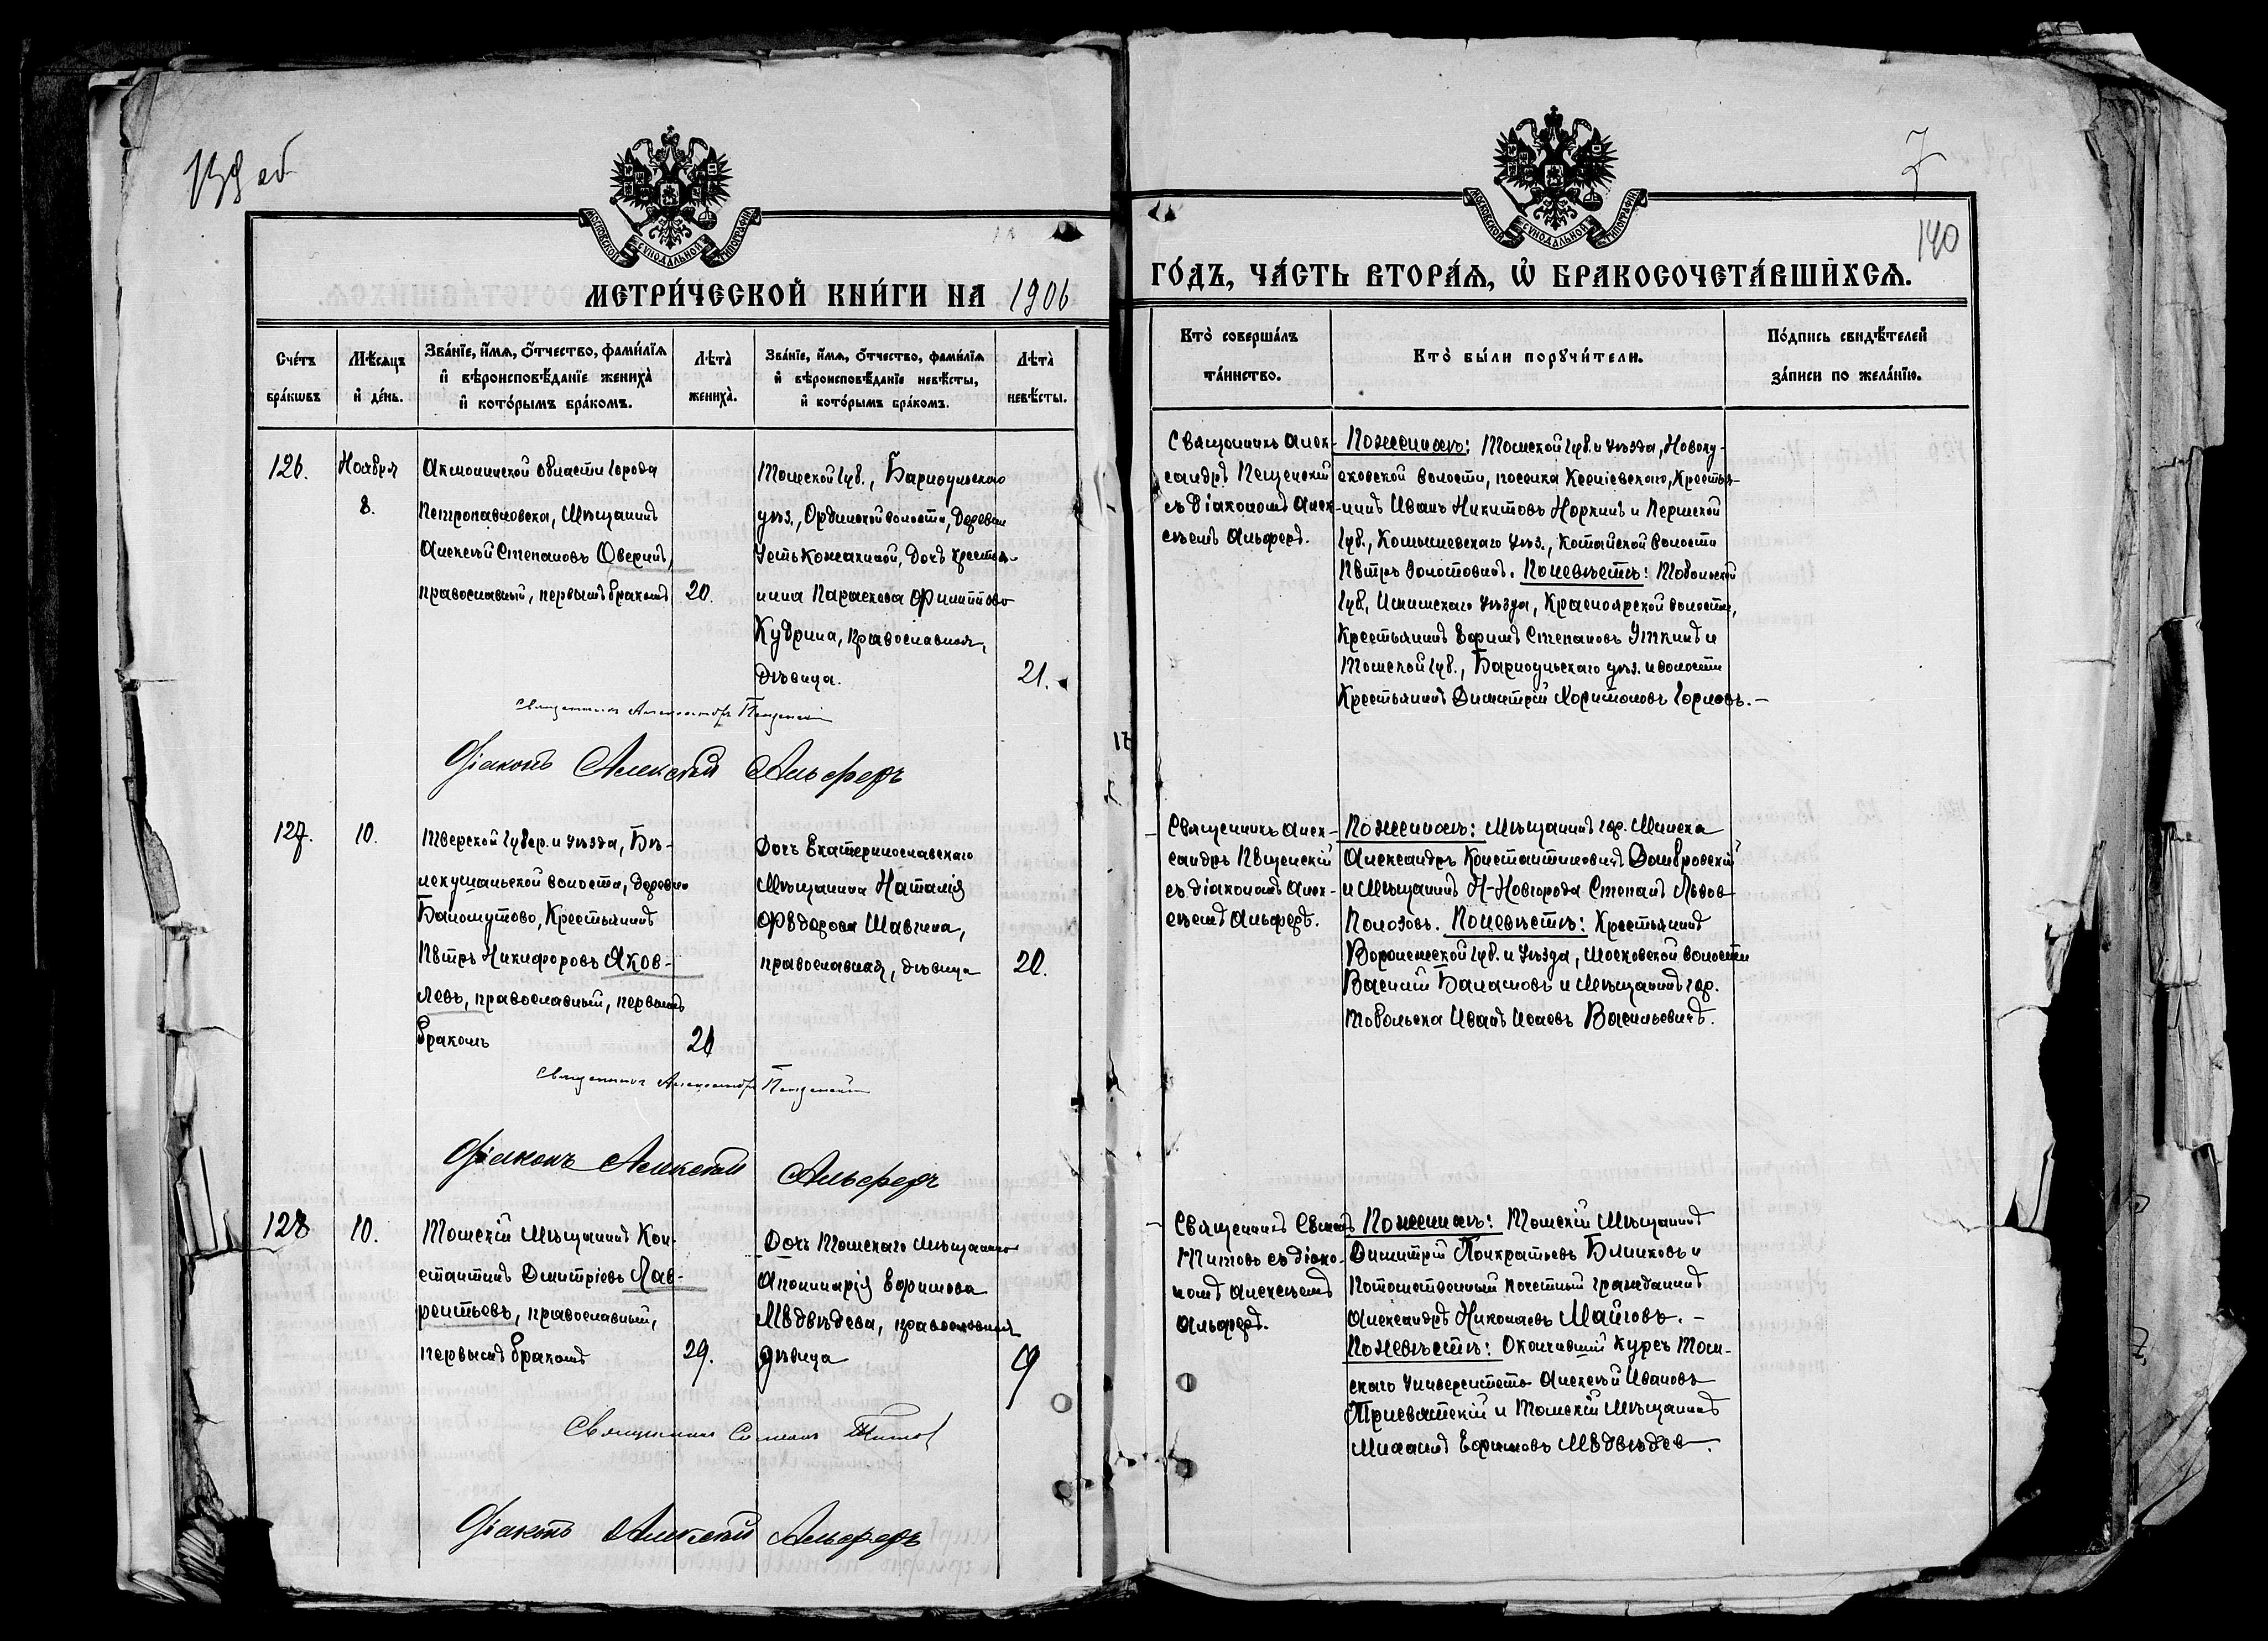 139 об
7
140
МОСКОВСКОЙ СУНОДАЛЬНОЙ ТИПОГРАФІИ
МОСКОВСКОЙ СУНОДАЛЬНОЙ ТИПОГРАФІИ
МЕТРИ́ЧЕСКОЙ КНИ́ГИ НА 1906
ГО́ДЪ, ЧА́СТЬ ВТОРА́Ѧ, Ѡ҆ БРАКОСОЧЕТА́ВШИХСѦ.
Сче́тъ
бра́кѡвъ
Мѣ́сѧцъ
и҆ де́нь.
Зва́нїе, и҆́мѧ, ѻ҆́тчество, фами́лїѧ
и҆ вѣроисповѣ́данїе жениха̀
и҆ кото́рымъ бра́комъ.
Лѣта̀
жениха̀.
Зва́нїе, и҆́мѧ, ѻ҆́тчество, фами́лїѧ
и҆ вѣроисповѣ́данїе невѣ́сты,
и҆ кото́рымъ бра́комъ.
Лѣта̀
невѣ́сты.
Кто̀ соверша́лъ
та́инство.
Кто̀ бы́ли порꙋчи́тели.
По́дпись свидѣ́телей
за́писи по жела́нїю.
126.
Ноября
8.
Акмолинской области города
Петропавловска, Мѣщанинъ
Алексѣй Степановъ Оверинъ,
православный, первымъ бракомъ
20.
Томской губ., Барнаульскаго
уѣз., Ординской волости, деревни
Усть Кожахиной, дочь крестья-
нина Параскева Филиппова
Кудрина, православная,
дѣвица.
21.
Священникъ Алек-
сандръ Пещенскій
съ діакономъ Алек-
сѣемъ Альферъ.
По женихѣ: Томской губ. и уѣзда, Новоку-
сковской волости, поселка Ксеніевскаго, Крестья-
нинъ Иванъ Никитовъ Норкинъ и Пермской
губ., Камышевскаго уѣз., Катайской волости
Пѣтръ Золотовъ. По невѣстѣ: Тобольской
губ., Ишимскаго уѣзда, Красноярской волости,
Крестьянинъ Ефимъ Степановъ Уткинъ и
Томской губ., Барнаульскаго уѣз. и волости
Крестьянинъ Димитрій Харитоновъ Горловъ.
Священникъ Александръ Пещенскій
Діаконъ Алексѣй Альферъ
127.
10.
Тверской губер. и уѣзда, Бѣ-
лекушальской волости, деревни
Баломутово, Крестьянинъ
Пѣтръ Никифоровъ Яков-
левъ, православный, первымъ
бракомъ
21
Дочь Екатеринославскаго
Мѣщанина Наталія
Фѣдорова Шавчена,
православная, дѣвица
20.
Священникъ Алек-
сандръ Пѣщенскій
съ діакономъ Алек-
сѣемъ Альферъ.
По женихѣ: Мѣщанинъ гор. Минска
Александръ Константиновичъ Домбровскій
и Мѣщанинъ Н-Новгорода Степанъ Львов
Полозовъ. По невѣстѣ: Крестьянинъ
Воронежской губ. и уѣзда, Московской волости
Василій Балашовъ и Мѣщанинъ гор.
Тобольска Иванъ Исаевъ Васильевичъ.
Священникъ Александръ Пещенскій
Діаконъ Алексѣй Альферъ
128
10.
Томскій Мѣщанинъ Кон-
стантинъ Дмитріевъ Лав-
рентьевъ, православный,
первымъ бракомъ
29.
Дочь Томскаго Мѣщанина
Аполинарія Ефимова
Мѣдвѣдева, православная
дѣвица
19
Священникъ Симеонъ
Титовъ съ діако-
номъ Алексѣемъ
Альферъ.
По женихѣ: Томскій Мѣщанинъ
Димитрій Панкратьевъ Блиновъ и
Потомственный почетный гражданинъ
Александръ Николаевъ Мейговъ.
По невѣстѣ: Окончившій курсъ Том-
скаго Университета Алексѣй Ивановъ
Присвятскій и Томскій Мѣщанинъ
Михаилъ Ефимовъ Мѣдвѣдев.
Священникъ Симеонъ Титов
Діаконъ Алексѣй Альферъ